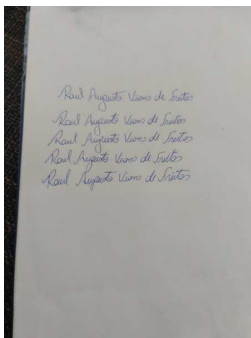 Raul Augusto Viana de Freitas
Raul Augusto Viana de Freitas
Raul Augusto Viana de Freitas
Raul Augusto Viana de Freitas
Raul Augusto Viana de Freitas